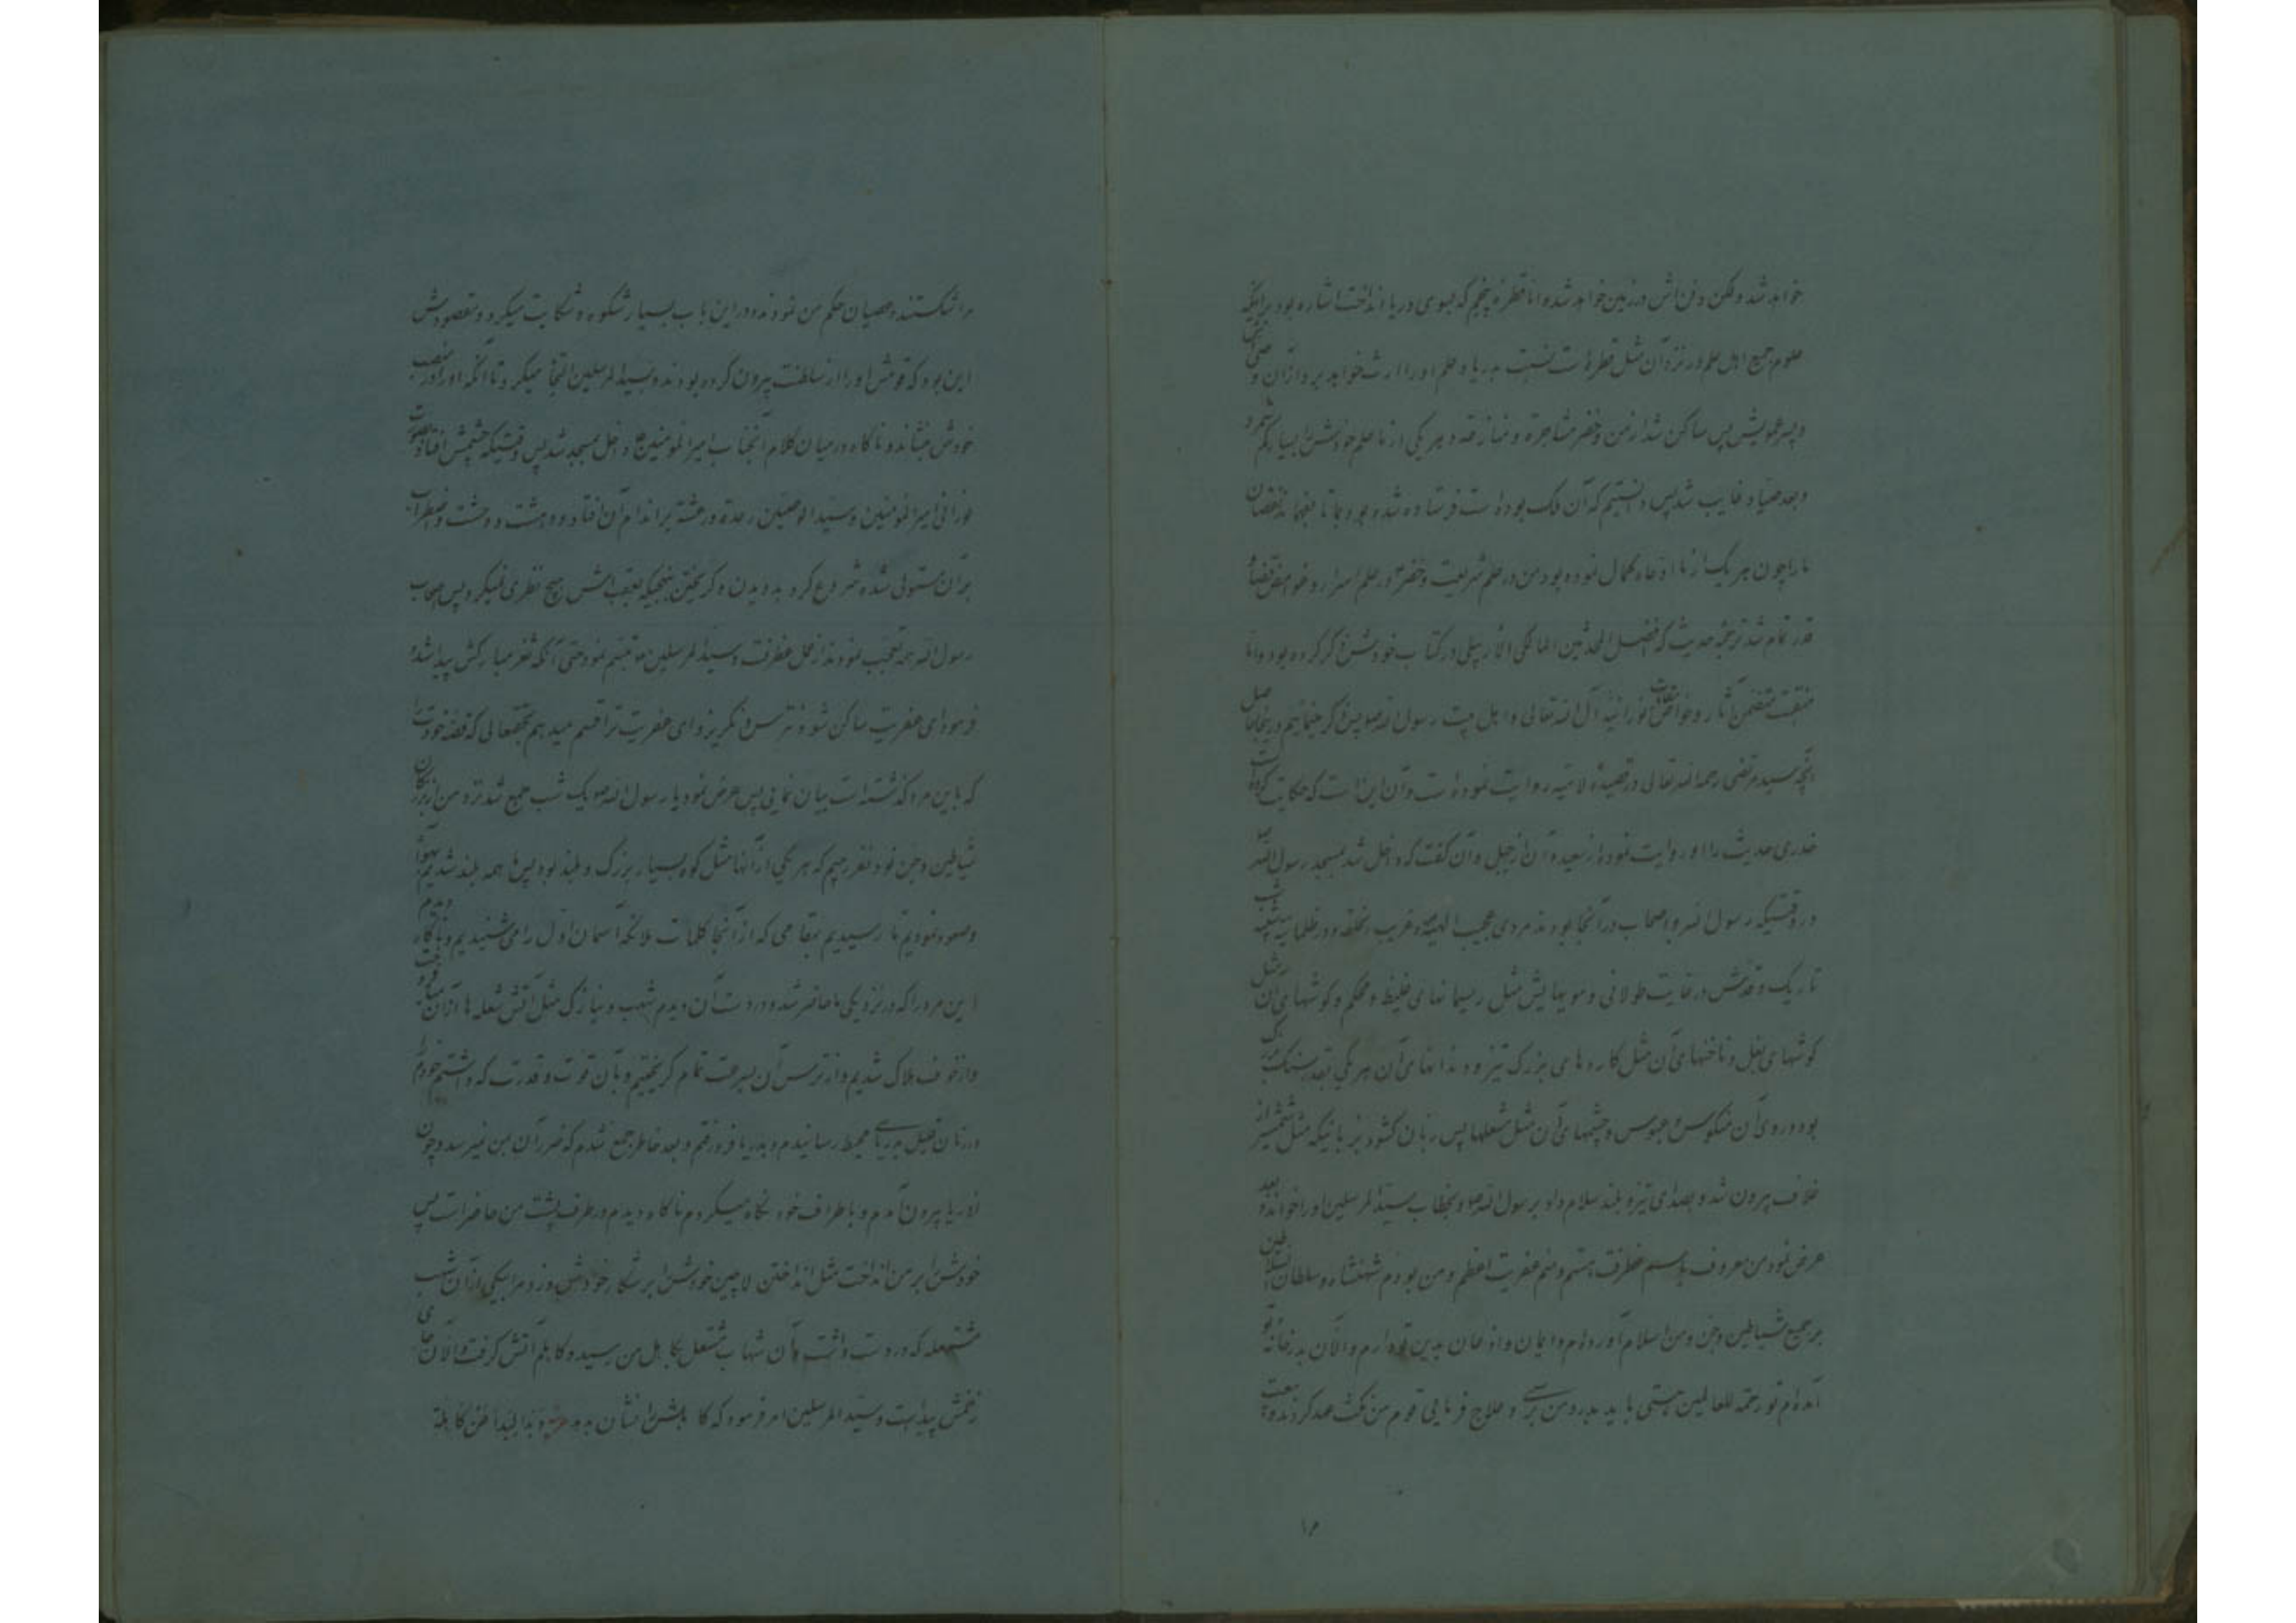 خواهد شد ولکن دفن اش در زمین خواهد شد و اما قطرهٔ پنجم که بسوی دریا انداخت اشاره بود برایکه
علوم جمیع اهل علم در نزد آن مثل قطره است نسبت به دریا و علم او را ارث خواهد برد از آن وصی آنها
و پسر عمویش پس ساکن شد از من و خضر مشاجره و منازعه و هر یکی از ما علم خودش را بسیار کم شمرد
و بعد صیاد غایب شد پس دانستیم که آن ملک بوده است فرستاده شده بود بما تا بفهماند نقصان
ما را چون هر یک از ما ادعاء کمال نموده بود من در علم شریعت و خضر در علم اسرار و غوامض قضا و
قدر تمام شد ترجمهٔ حدیث که افضل المحدثین المالکی الاربیلی در کتاب خودش ذکر کرده بود و اما
منقبت متضمن آثار و خواص نورانیه آل الله تعالی و اهل بیت رسول الله ص پس ذکر مینمایم در اینجا
آنچه سید مرتضی رحمه الله تعالی در قصیدهٔ لامیه روایت نموده است و آن این است که حکایت کرده است
خدری حدیث را و روایت نموده از سعید و آن از جبل و آن گفت که داخل شد بمسجد رسول الله ص
در وقتیکه رسول الله و اصحاب در آنجا بودند مردی عجیب الهیئه و غریب الخلقه و در ظلمانیه شب
تاریک و قدش در غایت طولانی و موهایش مثل ریسمانهای غلیظ و محکم و گوشهای آن مثل
گوشهای بغل و ناخنهای آن مثل کاردهای بزرگ تیز و دندانهای آن هر یکی بقدر سنک بزرک
بود و روی آن منکوس و عبوس و چشمهای آن مثل شعلها پس زبان کشود بزبانیکه مثل شمشیر از
غلاف بیرون شد و بصدای تیزه بلند سلام داد بر رسول الله ص و بخطاب سید المرسلین او را خواند و بعد
عرض نمود من معروف باسم عطرفت هستم و منم عفریت اعظم و من بودم شهنشاه و سلطان السلاطین
بر جمیع شیاطین و جن و من اسلام آورده‌ام و ایمان و اذعان بدین تو دارم و الآن بدر خانه تو
آمده‌ام تو رحمة للعالمین هستی باید بدرد من برسی و علاج فرمایی قوم من نکث عهد کردند و بیعت
مرا شکستند و عصیان حکم من نمودند و در این باب بسیار شکوه و شکایت میکرد و مقصودش
این بود که قومش او را از سلطنت بیرون کرده بودند و بسید المرسلین التجا میکرد تا آنکه او را در منصب
خودش بنشاند و ناگاه در میان کلام آنجناب امیر المومنین ع داخل بمسجد شد پس وقتیکه چشمش افتاد بصورت
نورانی امیر المومنین و سید الوصیین رعدة و رعشه بر اندام آن افتاد و دهشت و وحشت و اضطراب
بر آن مستولی شده شروع کرد به دویدن و گریختن بنحیکه بعقبش هیچ نظری نمیکرد پس اصحاب
رسول الله همه تعجب نمودند از فعل عطرفت و سید المرسلین ص تبسم نمود حتی آنکه ثغر مبارکش پیدا شد و
فرمود ای عفریت ساکن شو و نترس و مگریز و ای عفریت ترا قسم میدهم بحقتعالی که قصهٔ خودت را
که با این مرد گذشته است بیان نمایی پس عرض نمود یا رسول الله ص یک شب جمع شد نزد من از بزرگان
شیاطین و جن نود نفر رجیم که هر یکی از آنها مثل کوه بسیار بزرک و بلند بود پس ما همه بلند شدیم بهوا
وصعود نمودیم تا رسیدیم بمقامی که از آنجا کلمات ملائکه آسمان اول را می شنیدیم و ناگاه دیدم
این مرد را که در نزدیکی ما حاضر شد و در دست آن دیدم شهب و نیازک مثل آتش شعله ها از آن میافت
و از خوف هلاک شدیم و از ترس آن بسرعت تمام گریختیم و بآن قوت و قدرت که داشتم خودم را
در زمان قلیل بدریای محیط رسانیدم و بدریا فرو رفتم و بعد خاطر جمع شدم که ضرر آن بمن نمیرسد و چون
از دریا بیرون آمدم و با طراف خود نگاه میکردم ناگاه دیدم در طرف پشت من حاضر است پس
خودش را بر من انداخت مثل انداختن لاچین خودش را بر شکار خودش و زد مرا بیکی از آن شهب
مشتعله که در دست داشت و آن شهاب مشتعل بکاهل من رسیده و کاهلم آتش گرفت و الآن جای
زخمش پیدا است و سید المرسلین امر فرمود که کاهلش را نشان بدهد